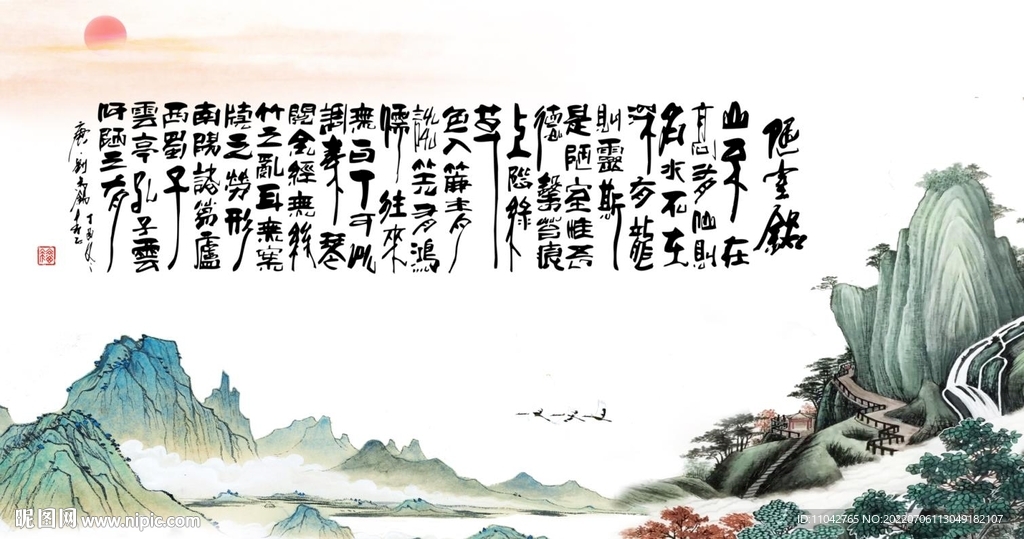 陋室銘
山不在
高有仙則
名水不在
深有龍
則靈斯
是陋室惟吾
德馨苔痕
上階綠
草
色入簾青
談笑有鴻
儒往來
無白丁可以
調素琴
閱金經無絲
竹之亂耳無案
牘之勞形
南陽諸葛廬
西蜀子
雲亭孔子雲
何陋之有
唐·劉禹錫
丁酉
昵图网 www.nipic.com
ID:11042765 NO:20220706113049182107